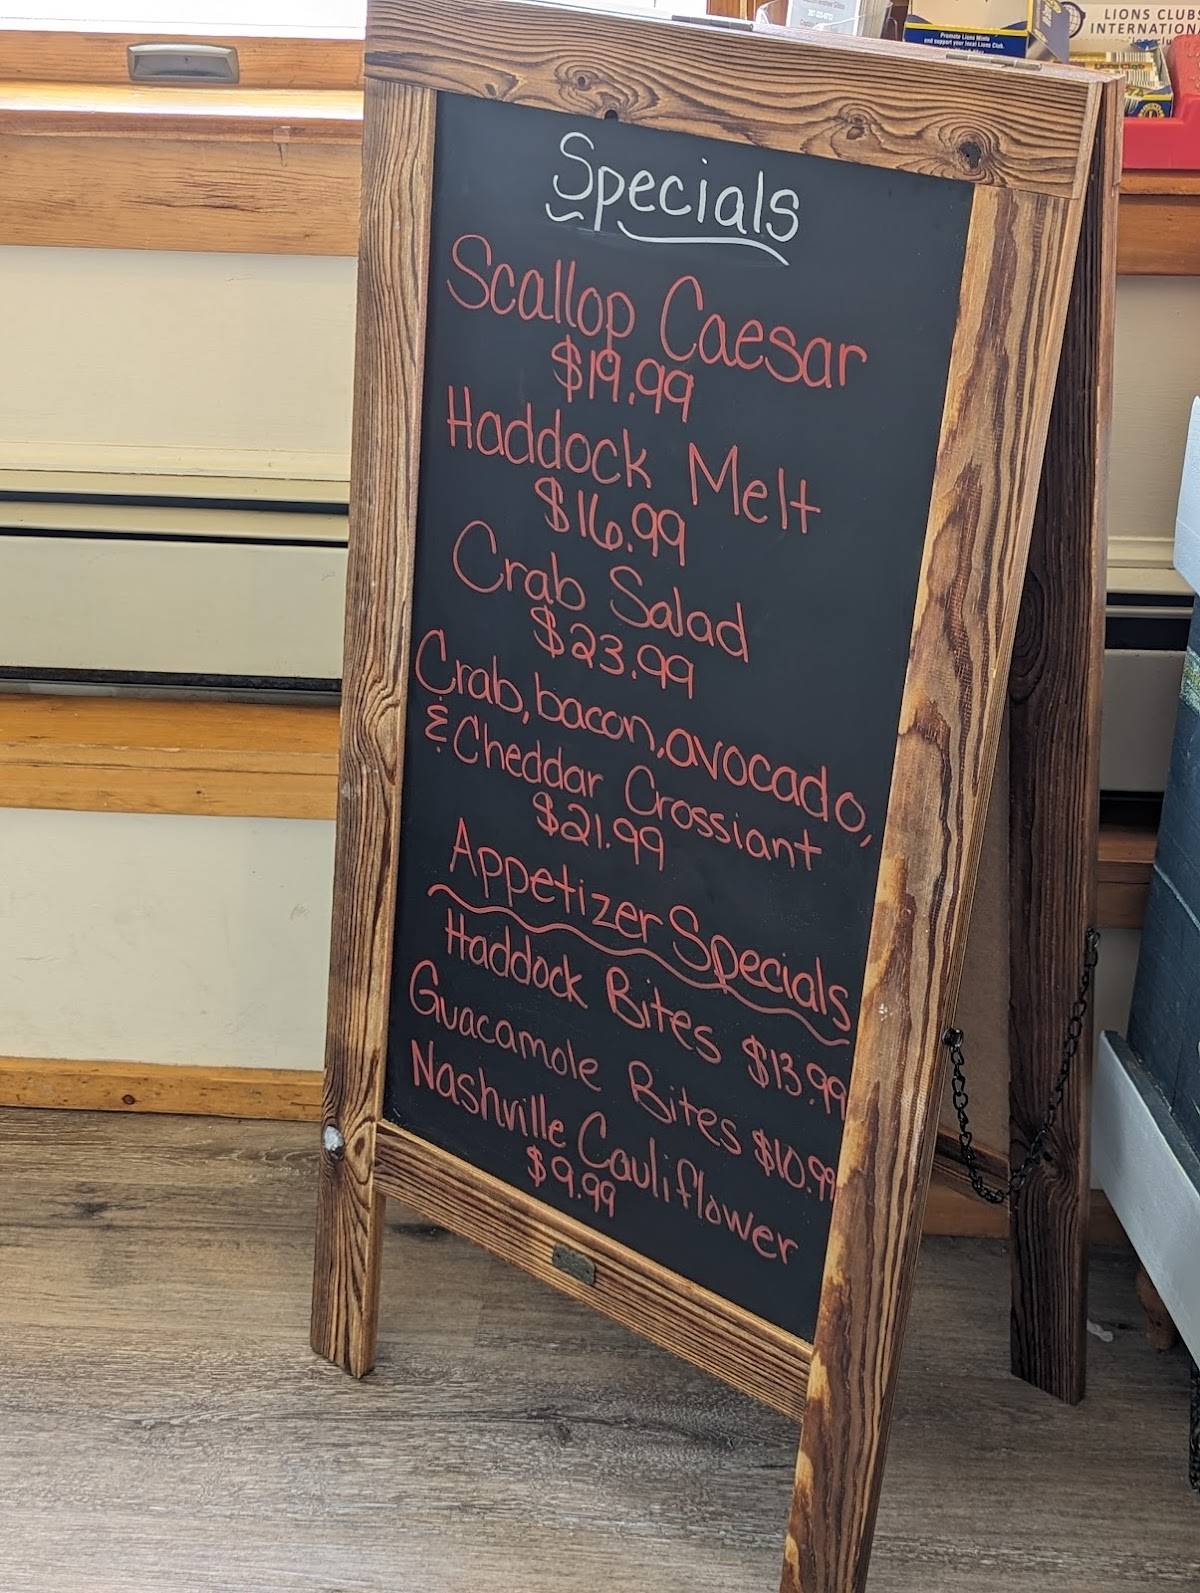 Promote Lions Mints
and support your local Lions Club.
LIONS CLUBS
INTERNATIONA
Specials
Scallop Caesar
$19.99
Haddock Melt
$16.99
Crab Salad
$23.99
Crab, bacon, avocado,
& Cheddar Crossiant
$21.99
Appetizer Specials
Haddock Bites $13.99
Guacamole Bites $10.99
Nashville Cauliflower
$9.99